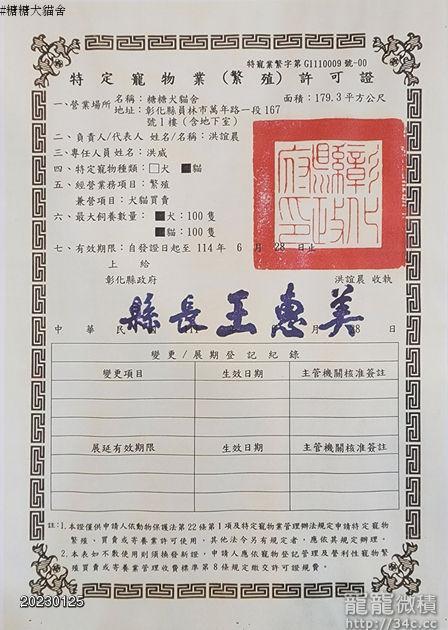 #糖糖犬貓舍
特寵業繁字第G1110009號-00
特定寵物業(繁殖)許可證
一、營業場所 名稱：糖糖犬貓舍 面積：179.3 平方公尺
地址：彰化縣員林市萬年路一段167
號1樓(含地下室)
二、負責人/代表人 姓名/名稱：洪誼晨
三、專任人員姓名：洪威
四、特定寵物種類：□犬 ■貓
五、經營業務項目：繁殖
兼營項目：犬貓買賣
六、最大飼養數量：■犬：100隻
■貓：100隻
七、有效期限：自發證日起至114年 6 月 28 日止
上 給
彰化縣政府 洪誼晨 收執
彰化縣政府印
縣長王惠美
中華民 月 日
變更/展期登記紀錄
變更項目 生效日期 主管機關核准簽註
展延有效期限 生效日期 主管機關核准簽註
註：1.本證僅供申請人依動物保護法第22條第1項及特定寵物業管理辦法規定申請特定寵物
繁殖、買賣或寄養業許可使用，其他法令另有規定者，應依其規定辦理。
2.本表如不敷使用則須換發新證，申請人應依寵物登記管理及營利性寵物繁
殖買賣或寄養業管理收費標準第8條規定繳交許可證規費。
20230125
龍龍微積
http://34c.cc